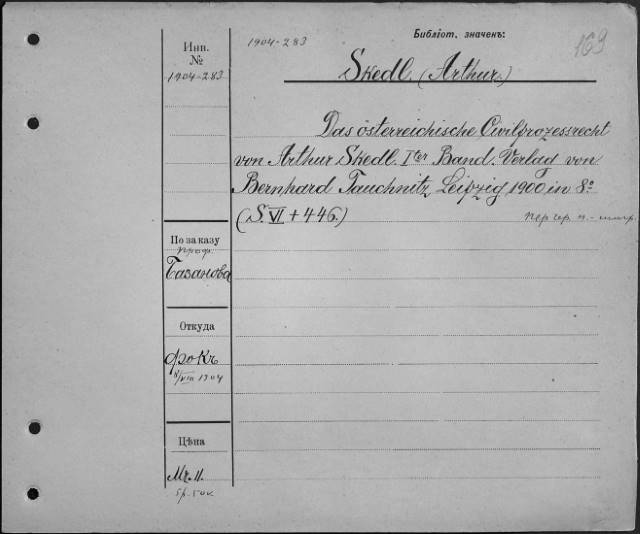 Библіот. значенъ:
169
Инв.
№
1904-283
1904-283
Skedl. (Arthur.)
Das österreichische Civilprozessrecht
von Arthur Skedl. Iter Band. Verlag von
Bernhard Tauchnitz, Leipzig 1900 in 8º
(S. VI + 446.)
По заказу
проф.
Базанова
Откуда
Фокъ
8/VIII 1904
Цѣна
Mk. 11.
5р. 50к